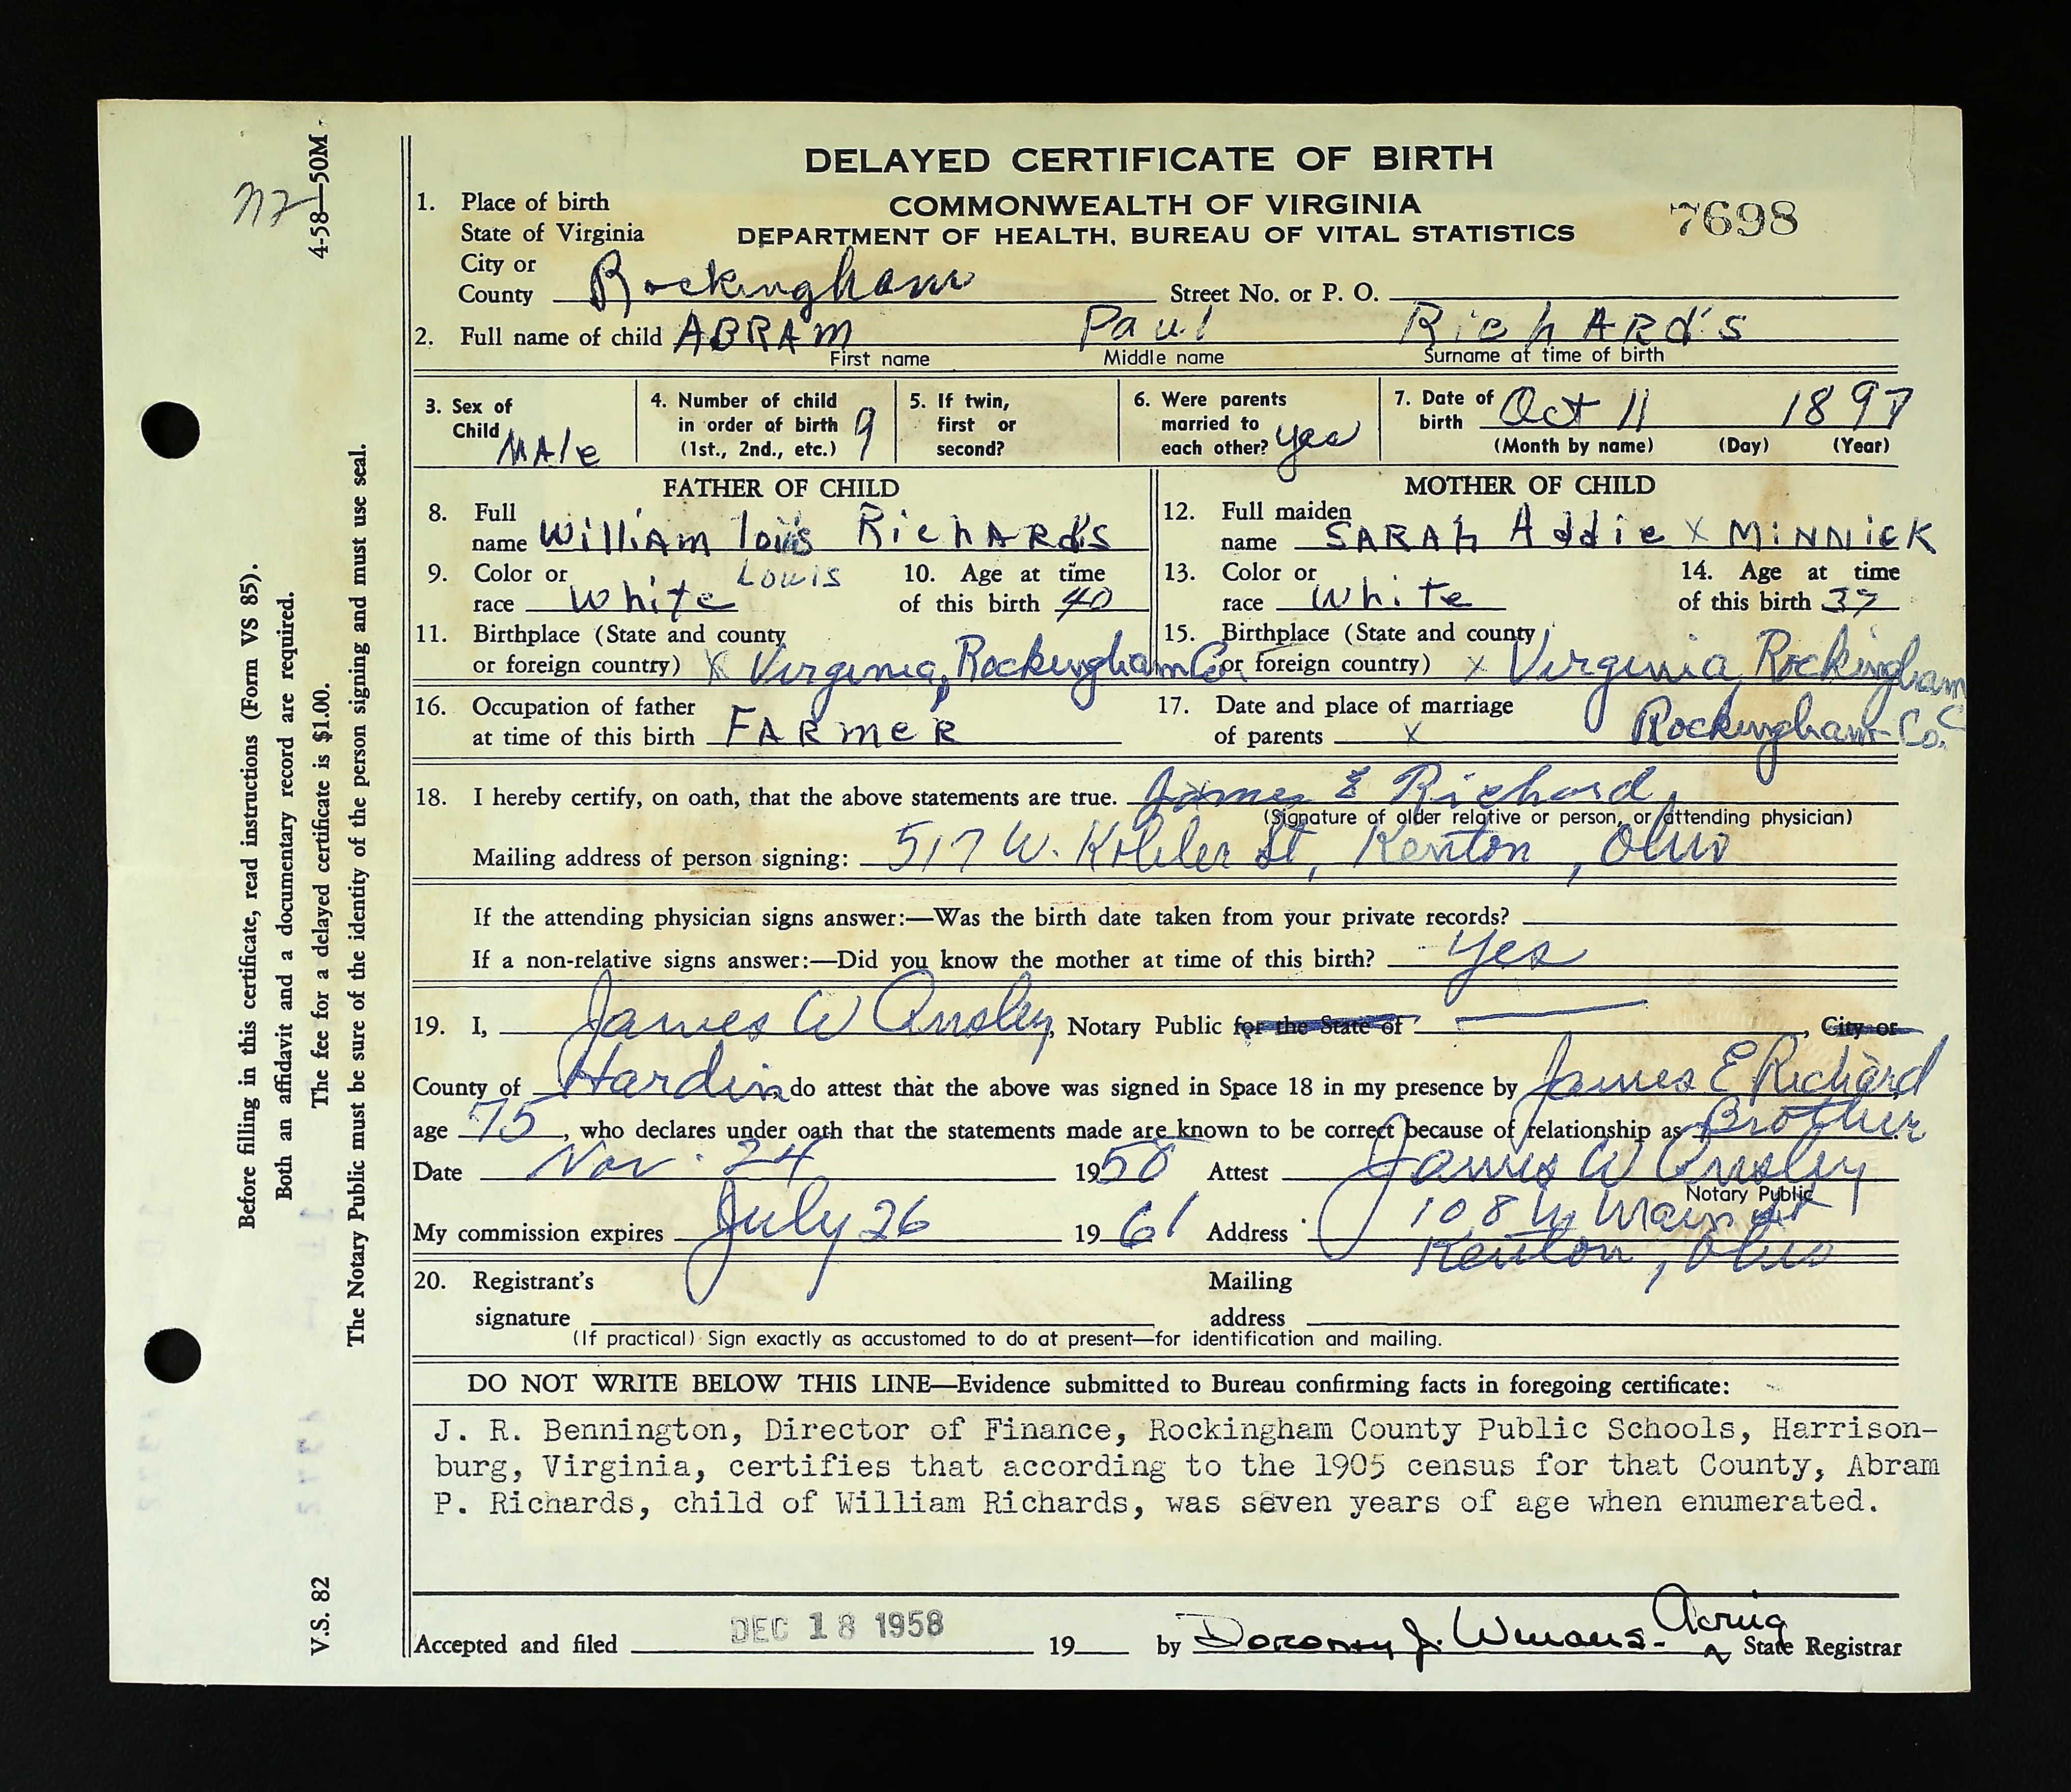 DELAYED CERTIFICATE OF BIRTH
COMMONWEALTH OF VIRGINIA
DEPARTMENT OF HEALTH, BUREAU OF VITAL STATISTICS
7698
1. Place of birth
State of Virginia
City or
County Rockingham Street No. or P. O.
2. Full name of child ABRAM Paul RichARds
First name Middle name Surname at time of birth
3. Sex of Child MAle
4. Number of child in order of birth (1st., 2nd., etc.) 9
5. If twin, first or second?
6. Were parents married to each other? yes
7. Date of birth Oct 11 1897
(Month by name) (Day) (Year)
FATHER OF CHILD
8. Full name William lois RichARds
Louis
9. Color or race White
10. Age at time of this birth 40
11. Birthplace (State and county or foreign country) X Virginia, Rockingham Co.
MOTHER OF CHILD
12. Full maiden name SARAh Addie X MiNNicK
13. Color or race White
14. Age at time of this birth 37
15. Birthplace (State and county or foreign country) X Virginia Rockingham Co
16. Occupation of father at time of this birth FARmeR
17. Date and place of marriage of parents X Rockingham Co.
18. I hereby certify, on oath, that the above statements are true. James E Richard
(Signature of older relative or person, or attending physician)
Mailing address of person signing: 517 W. Kohler St, Kenton, Ohio
If the attending physician signs answer:—Was the birth date taken from your private records?
If a non-relative signs answer:—Did you know the mother at time of this birth? Yes
19. I, James W Ansley, Notary Public for the State of —, City or
County of Hardin do attest that the above was signed in Space 18 in my presence by James E Richard
age 75, who declares under oath that the statements made are known to be correct because of relationship as Brother
Date Nov. 24 1958 Attest James W Ansley
Notary Public
My commission expires July 26 1961 Address 108 W Main St
Kenton, Ohio
20. Registrant's signature Mailing address
(If practical) Sign exactly as accustomed to do at present—for identification and mailing.
DO NOT WRITE BELOW THIS LINE—Evidence submitted to Bureau confirming facts in foregoing certificate:
J. R. Bennington, Director of Finance, Rockingham County Public Schools, Harrison-
burg, Virginia, certifies that according to the 1905 census for that County, Abram
P. Richards, child of William Richards, was seven years of age when enumerated.
Accepted and filed DEC 18 1958 19 by Dorothy J. Winans - Acting State Registrar
Before filling in this certificate, read instructions (Form VS 85).
Both an affidavit and a documentary record are required.
The fee for a delayed certificate is $1.00.
The Notary Public must be sure of the identity of the person signing and must use seal.
V.S. 82
4-58—50M